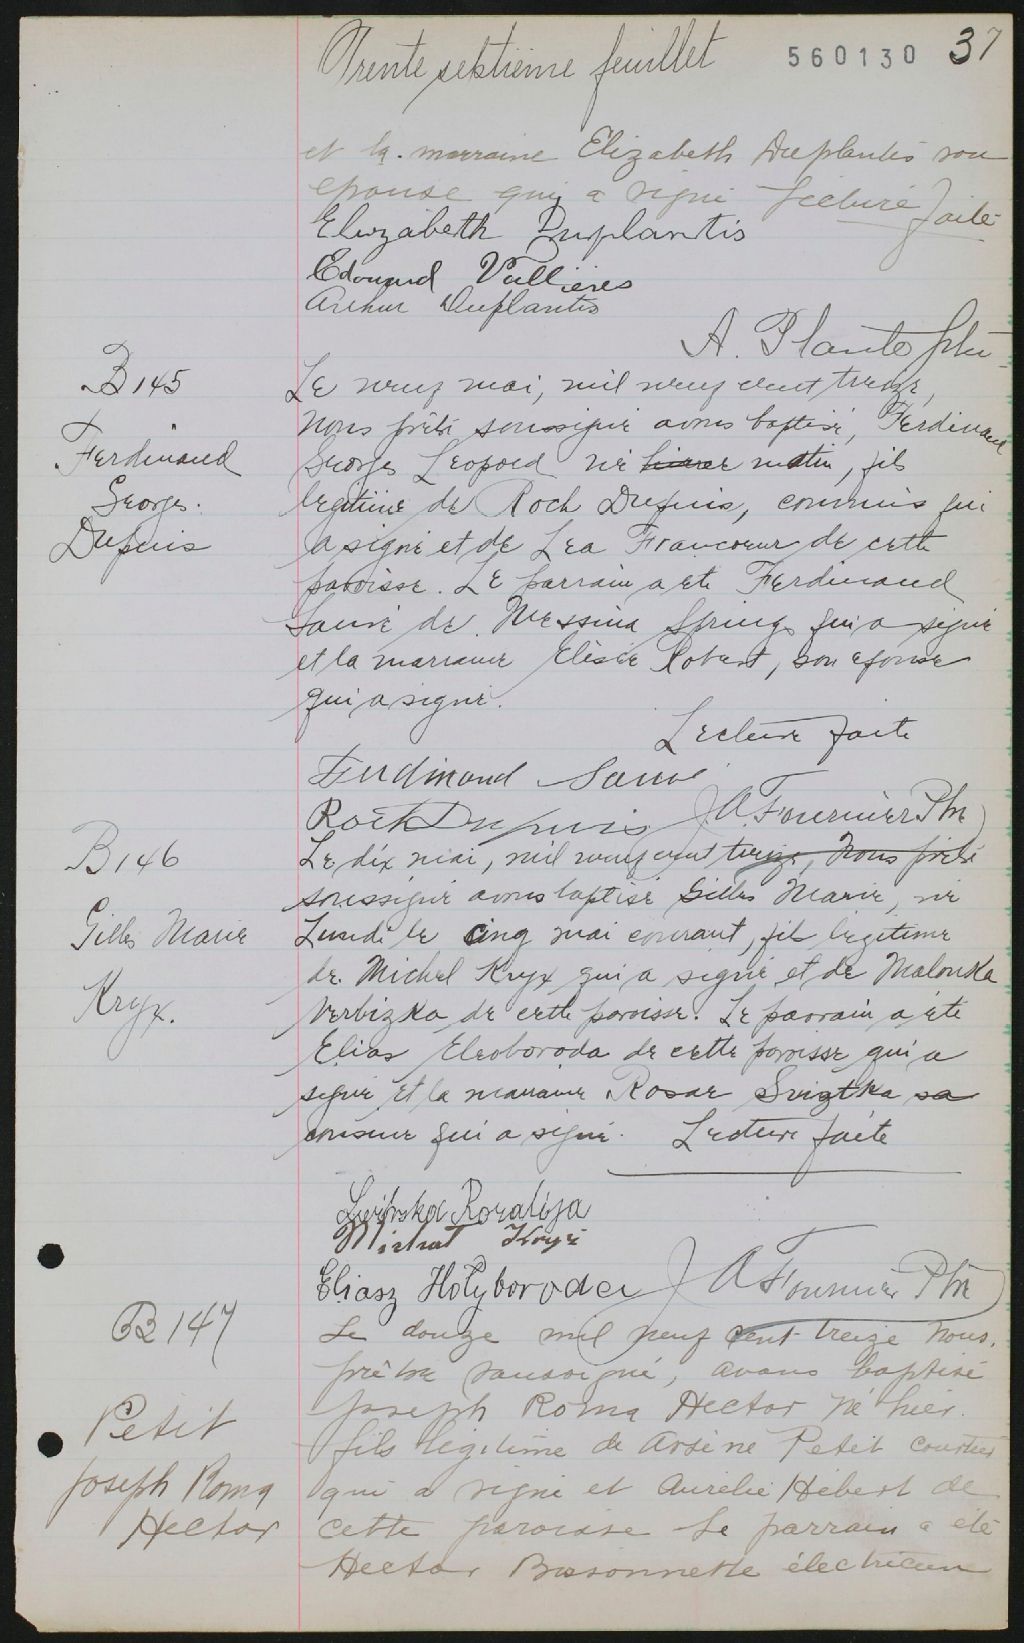 Trente septième feuillet 560130 37
et la marraine Elizabeth Duplantis son
epouse qui a signé Lecture faite
Elizabeth Duplantis
Edouard Vallieres
Arthur Duplantis
A. Plante ptre
B 145
Ferdinand
Georges.
Dupuis
Le neuf mai, mil neuf cent treize,
Nous prêtre soussigné avons baptisé, Ferdinand
Georges Leopold né hier matin, fils
legitime de Roch Dupuis, commis qui
a signé et de Lea Francoeur de cette
paroisse. Le parrain a été Ferdinand
Sauvé de Messina Springs qui a signé
et la marraine Robert, son epouse
qui a signé.
Lecture faite
Ferdinand Sauvé
Roch Dupuis A. Fournier Ptre
B 146
Gilles Marie
Kryx.
Le dix mai, mil neuf cent treize, Nous prêtre
soussigné avons baptisé Gilles Marie, né
Lundi le cinq mai courant, fils légitime
de Michel Kryx qui a signé et de Malonka
Verbizka de cette paroisse. Le parrain a été
Elias Eleoboroda de cette paroisse qui a
signé et la marraine Rosae Sviztka sa
cousine qui a signé. Lecture faite
Rozalija
Michat
Eliasz Hołyboroda A Fournier Ptre
B 147
Petit
Joseph Roma
Hector
Le douze mil neuf cent treize Nous.
prêtre soussigné, avons baptisé
Joseph Roma Hector né hier.
fils légitime de Arsène Petit courtier
qui a signé et Aurélie Hébert de
cette paroisse Le parrain a été
Hector Bissonnette électricien